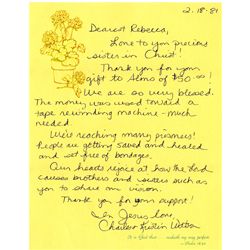 2-18-81
Dearest Rebecca,
Love to you precious
sister in Christ!
Thank you for your
gift to Alms of $50.00!
We are so very blessed.
The money was used toward a
tape rewinding machine - much
needed.
We're reaching many prisoners!
People are getting saved and healed
and set free of bondages.
Our hearts rejoice at how the Lord
causes brothers and sisters such as
you to share our vision.
Thank you for your support!
In Jesus Love,
Charles &
It is God that maketh my way perfect